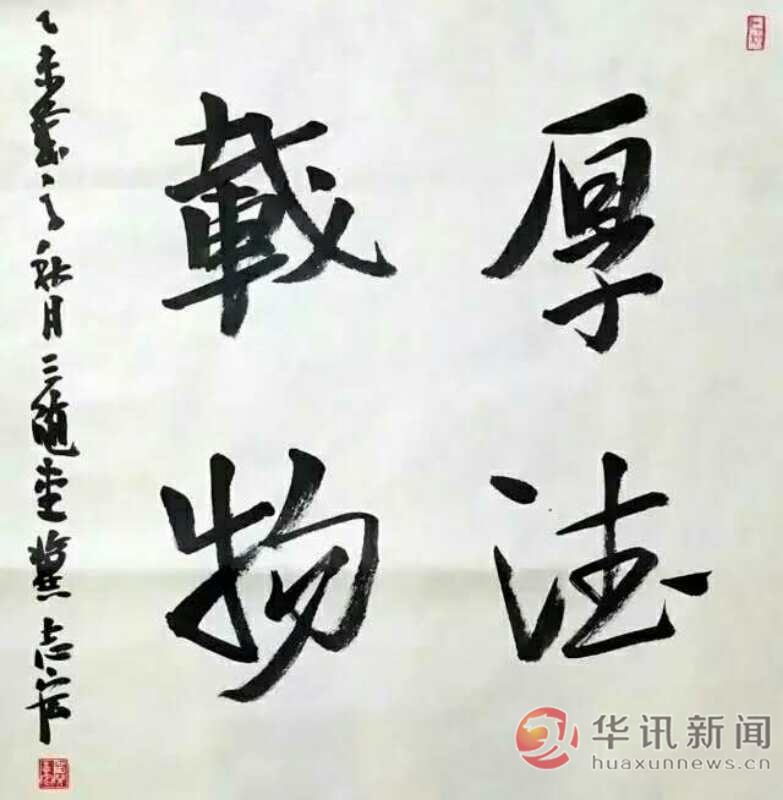 厚德
載物
乙未藏之秋月三魂堂冀志官
华讯新闻
huaxunnews.cn